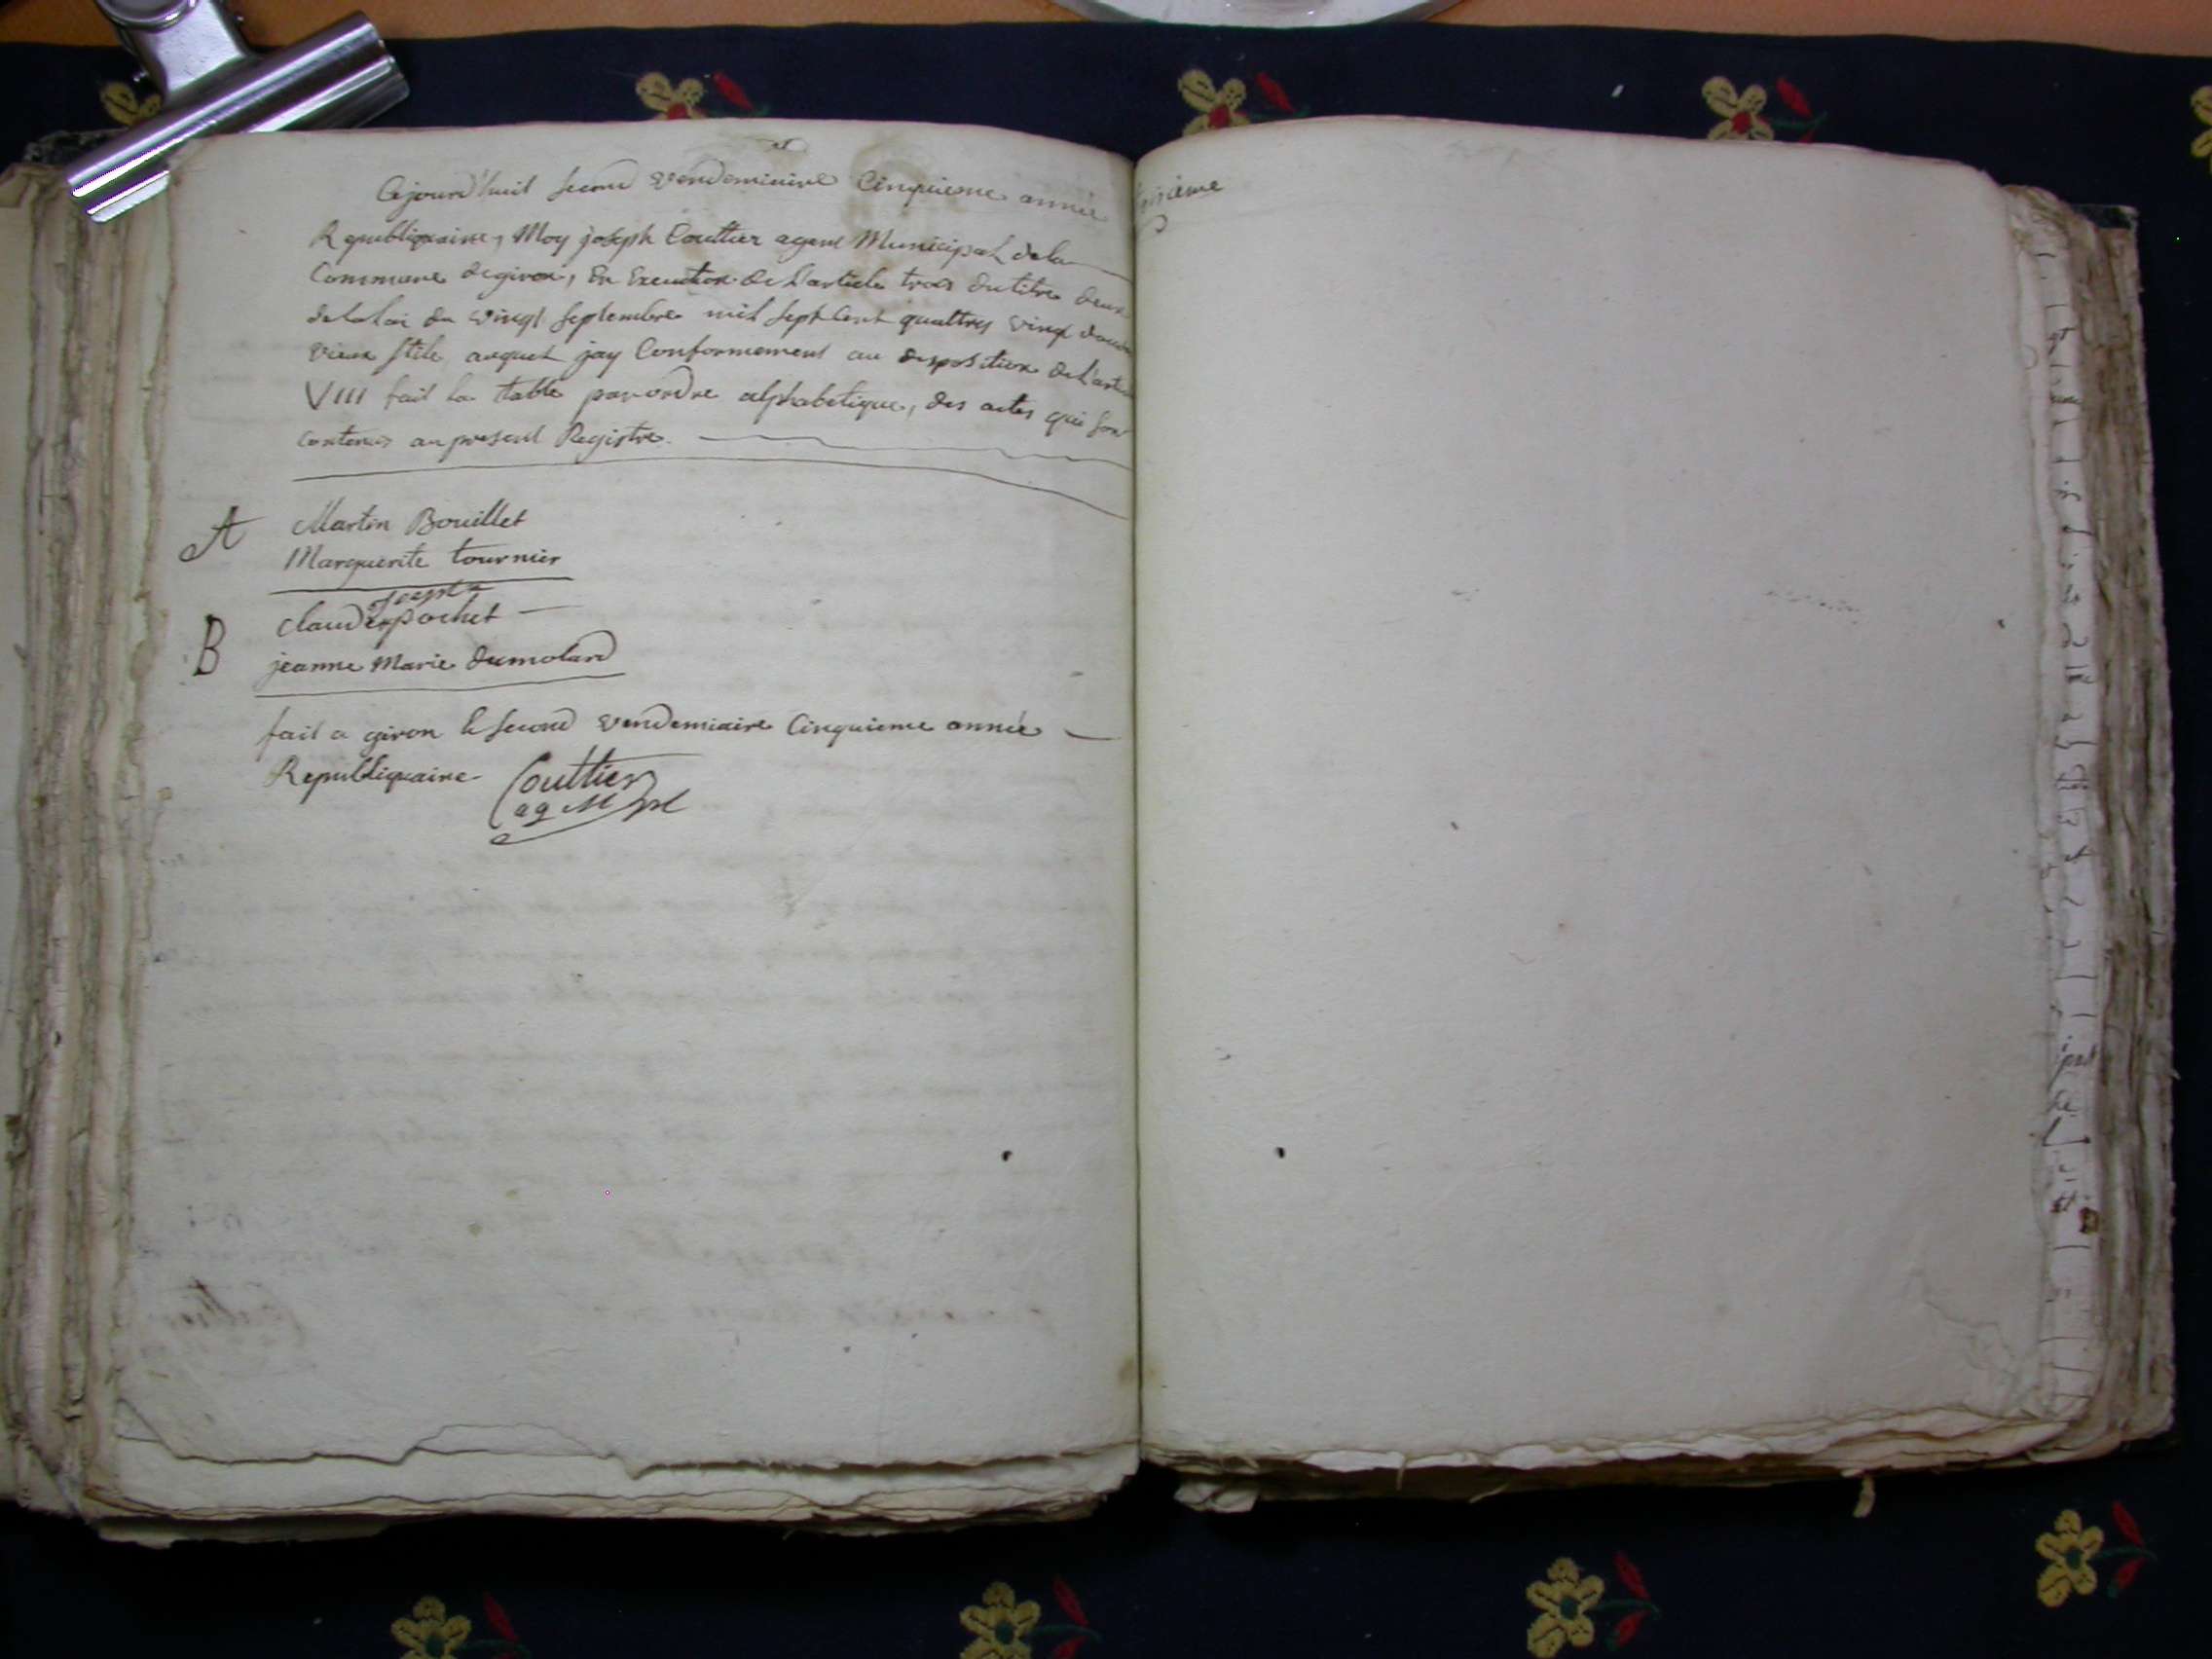 Cejourd'huit second vendemiaire Cinquieme année
Republiquaine, Moy joseph Couttier agent Municipal dela
Commune degiron, En Execution de L'article trois du titre deux
delaloi du vingt septembre mil sept Cent quattres vingt douze
vieux stile auquel jay Conformement au disposition de L'article
VIII fait la table par ordre alphabetique, des actes qui son
contenus au present Registre.
A Martin Bouillet
Marguerite tournier
joseph
B claude pochet
jeanne Marie dumolard
fait a giron le second vendemiaire Cinquieme année
Republiquaine Couttier
ag Mpl